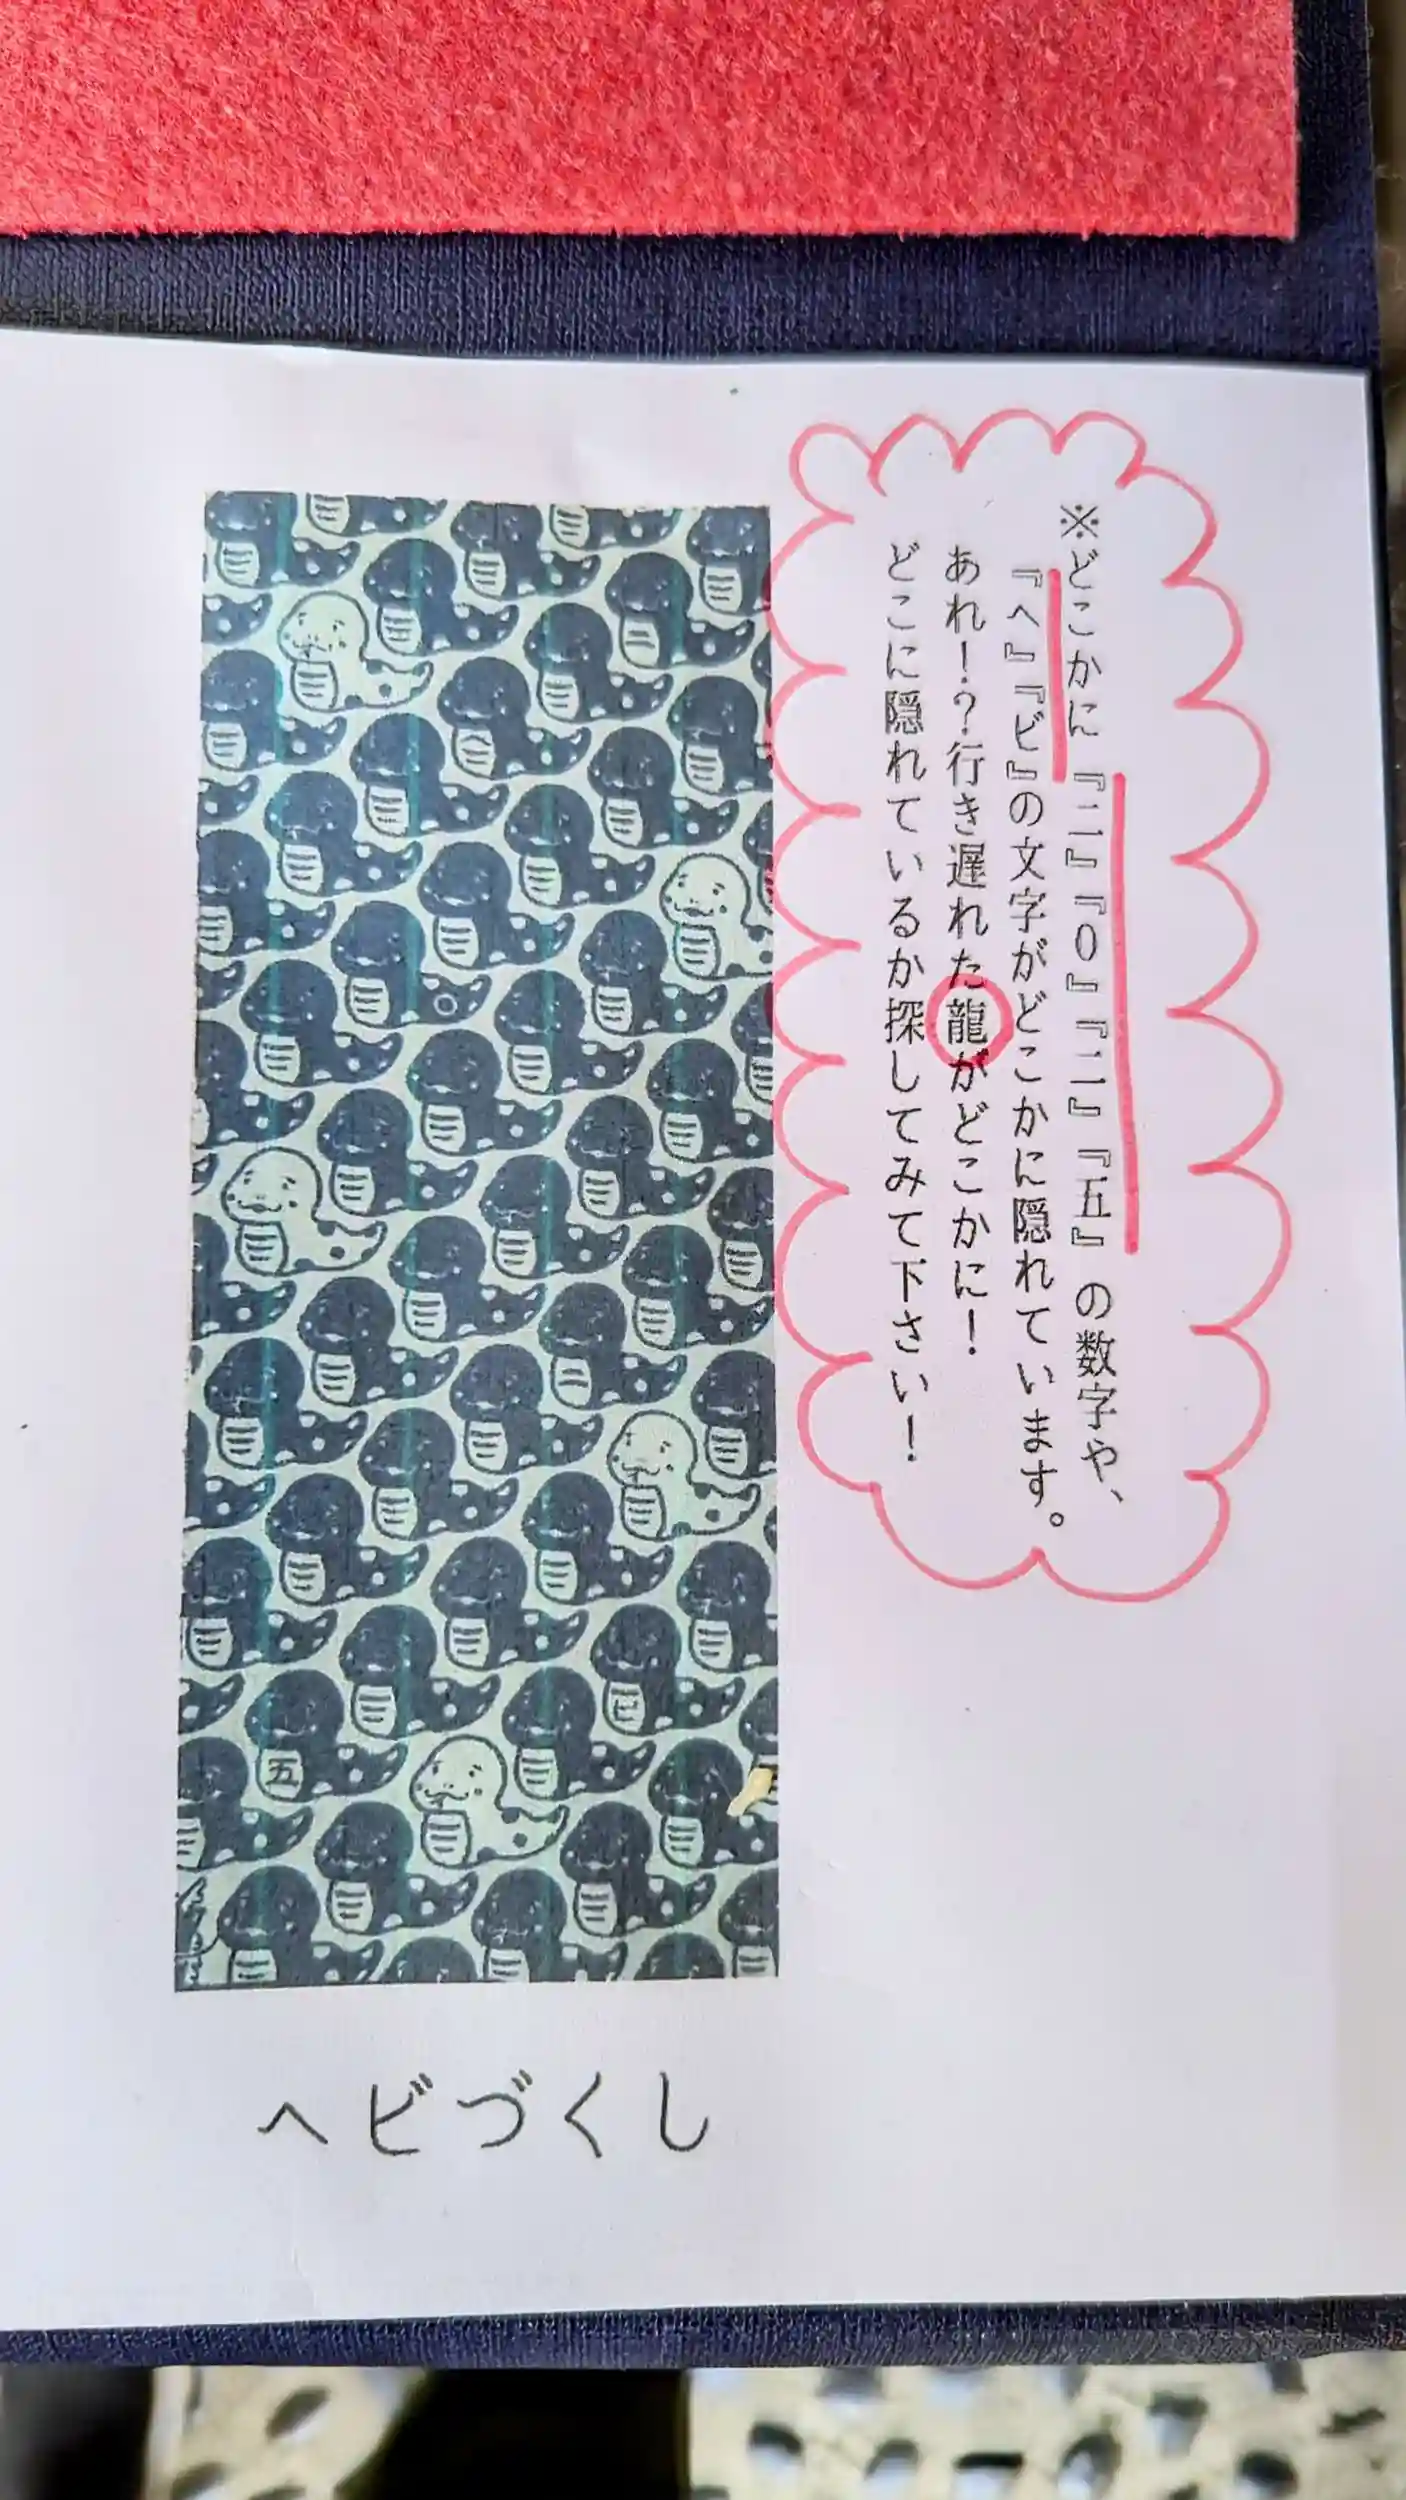 ※どこかに『二』『0』『二』『五』の数字や、
『ヘ』『ビ』の文字がどこかに隠れています。
あれ！？行き遅れた龍がどこかに！
どこに隠れているか探してみて下さい！
二
○
二
五
ヘビづくし